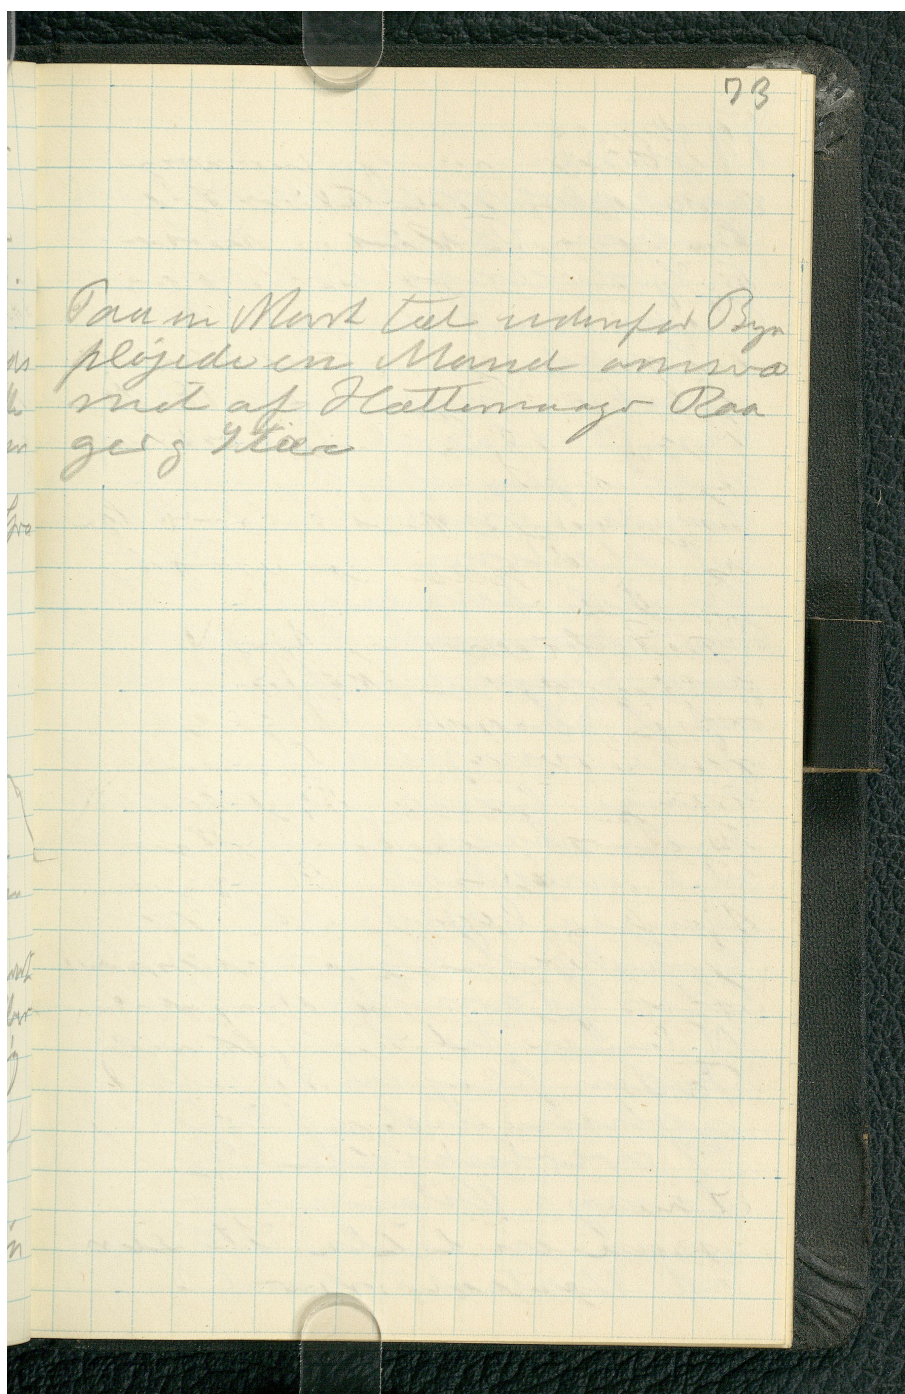 73
Paa en Mark tæt udenfor Byen
pløjede en Mand omsvæ
met af Hættemaager Raa
ger og Stære